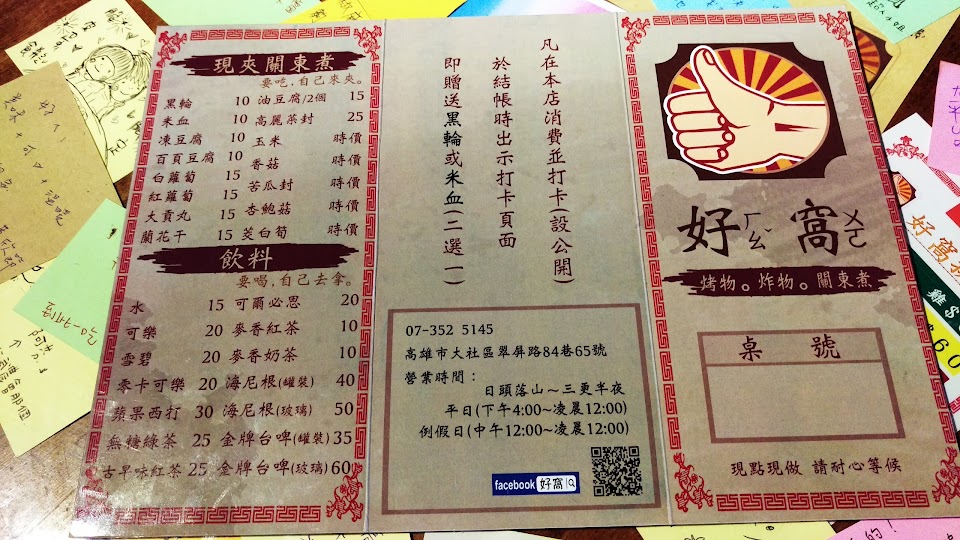 現夾關東煮
要吃,自己來夾。
黑輪 10 油豆腐/2個 15
米血 10 高麗菜封 25
凍豆腐 10 玉米 時價
百頁豆腐 10 香菇 時價
白蘿蔔 15 苦瓜封 時價
紅蘿蔔 15 杏鮑菇 時價
大貢丸 15 茭白筍 時價
蘭花干 15
飲料
要喝,自己去拿。
水 15 可爾必思 20
可樂 20 麥香紅茶 10
雪碧 20 麥香奶茶 10
零卡可樂 20 海尼根(罐裝) 40
蘋果西打 30 海尼根(玻璃) 50
無糖綠茶 25 金牌台啤(罐裝) 35
古早味紅茶 25 金牌台啤(玻璃) 60
凡在本店消費並打卡(設公開)
於結帳時出示打卡頁面
即贈送黑輪或米血(二選一)
07-352 5145
高雄市大社區翠屏路84巷65號
營業時間:
日頭落山~三更半夜
平日(下午4:00~凌晨12:00)
例假日(中午12:00~凌晨12:00)
facebook 好窩
好ㄏㄠˇ 窩ㄨㄛ
烤物。炸物。關東煮
桌 號
現點現做 請耐心等候
好窩
雞